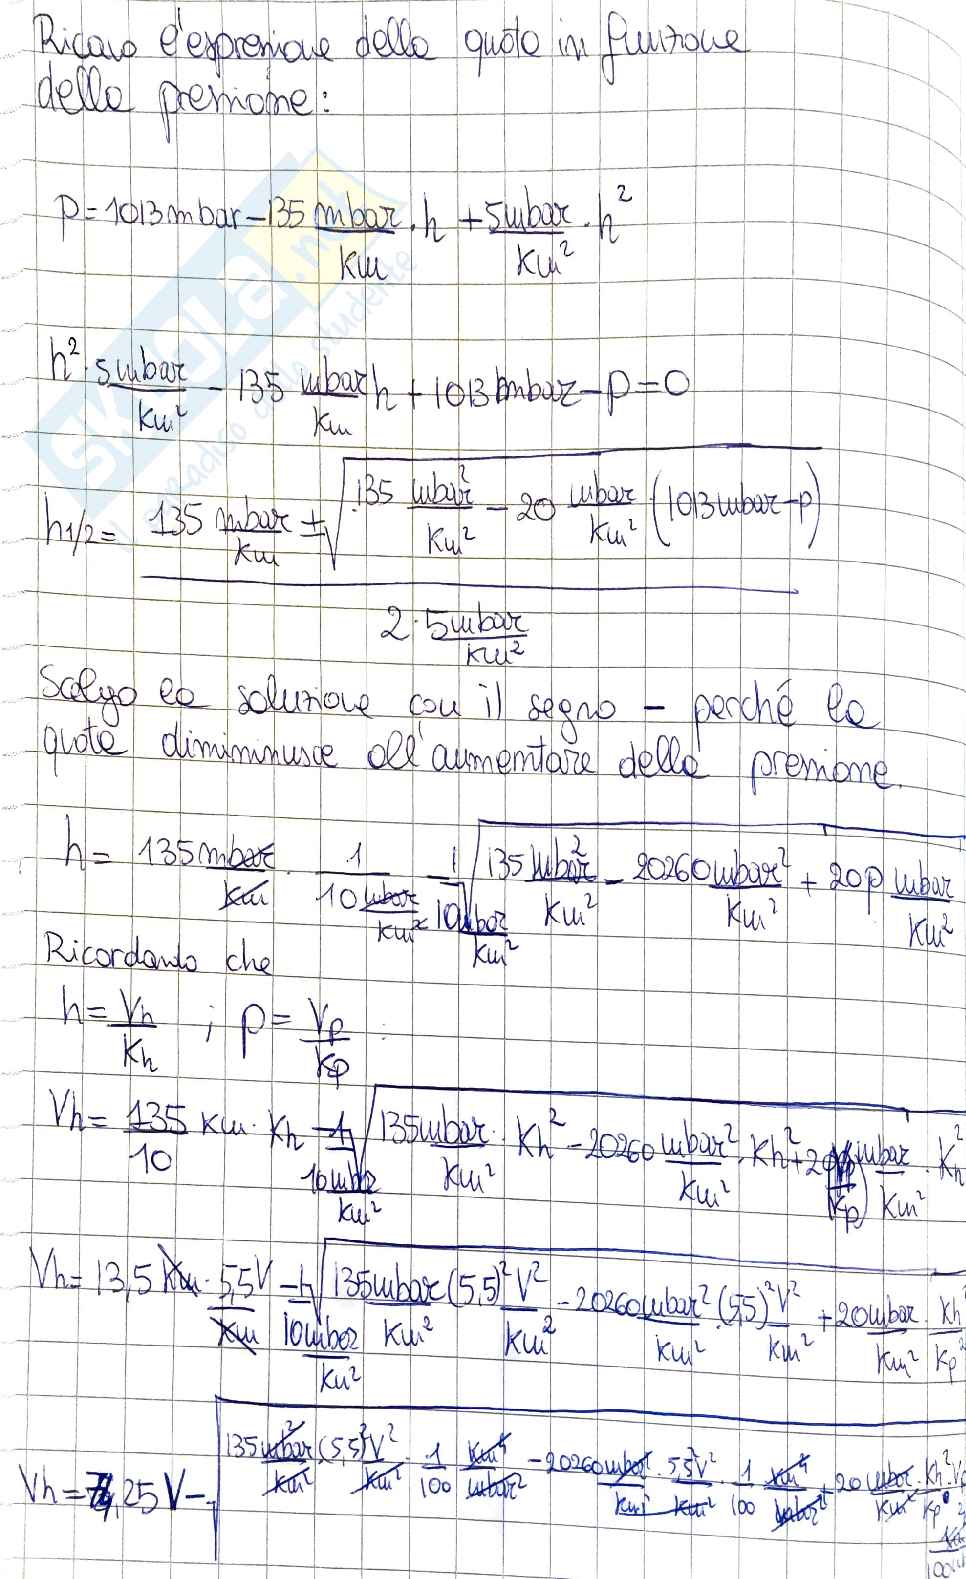 Ricavo l'espressione della quota in funzione
della pressione:
p=1013mbar-135 mbar/km · h + 5mbar/km² · h²
h² · 5mbar/km² - 135 mbar/km h + 1013mbar - p = 0
h1/2 = (135 mbar/km ± √(135 mbar²/km² - 20 mbar/km² (1013mbar-p))) / (2·5mbar/km²)
Scelgo la soluzione con il segno - perché la
quota dimiminuisce all'aumentare della pressione.
h = 135mbar/km · 1/(10mbar/km²) - 1/(10mbar/km²) √(135 mbar²/km² - 20260mbar²/km² + 20p mbar/km²)
Ricordando che
h = Vh/Kh ; p = Vp/Kp
Vh = 135/10 km · Kh - 1/(10mbar/km²) √(135mbar/km² · Kh² - 20260 mbar²/km² · Kh² + 20 Vp/Kp mbar/km² · Kh²
Vh = 13,5 km · 5,5V/km - 1/(10mbar/km²) √(135mbar/km² (5,5)² V²/km² - 20260mbar²/km² · (5,5)² V²/km² + 20mbar/km² · Kh²/Kp
Vh = 74,25 V - √(135mbar²/km² (5,5)² V²/km² · 1/100 km⁴/mbar² - 20260mbar²/km² · 5,5² V²/km² · 1/100 km⁴/mbar² + 20 mbar/km² · Kh²/Kp